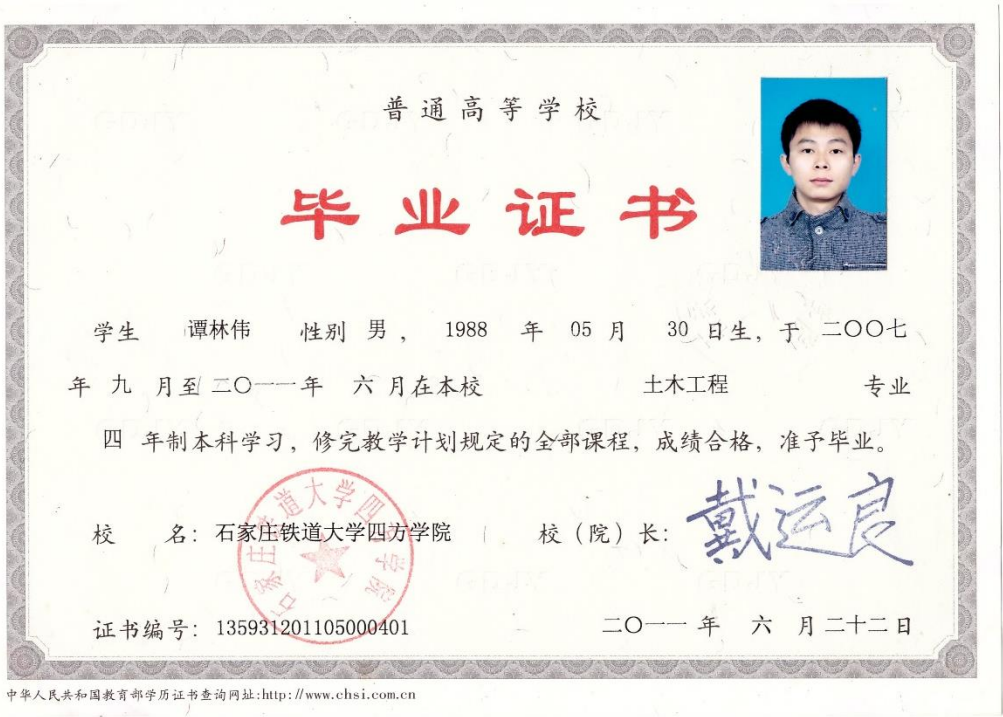 普通高等学校
毕业证书
学生 谭林伟 性别 男， 1988 年 05 月 30 日生，于 二〇〇七
年 九 月至 二〇一一 年 六 月在本校 土木工程 专业
四 年制本科学习，修完教学计划规定的全部课程，成绩合格，准予毕业。
石家庄铁道大学四方学院
校 名：石家庄铁道大学四方学院 校（院）长：戴运良
证书编号：135931201105000401 二〇一一 年 六 月 二十二 日
中华人民共和国教育部学历证书查询网址:http://www.chsi.com.cn